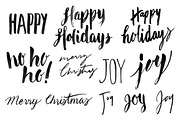 HAPPY
Happy
Holidays
Happy
holidays
ho ho
ho!
merry
Christmas
JOY
joy
Merry Christmas
Joy
Joy
Joy